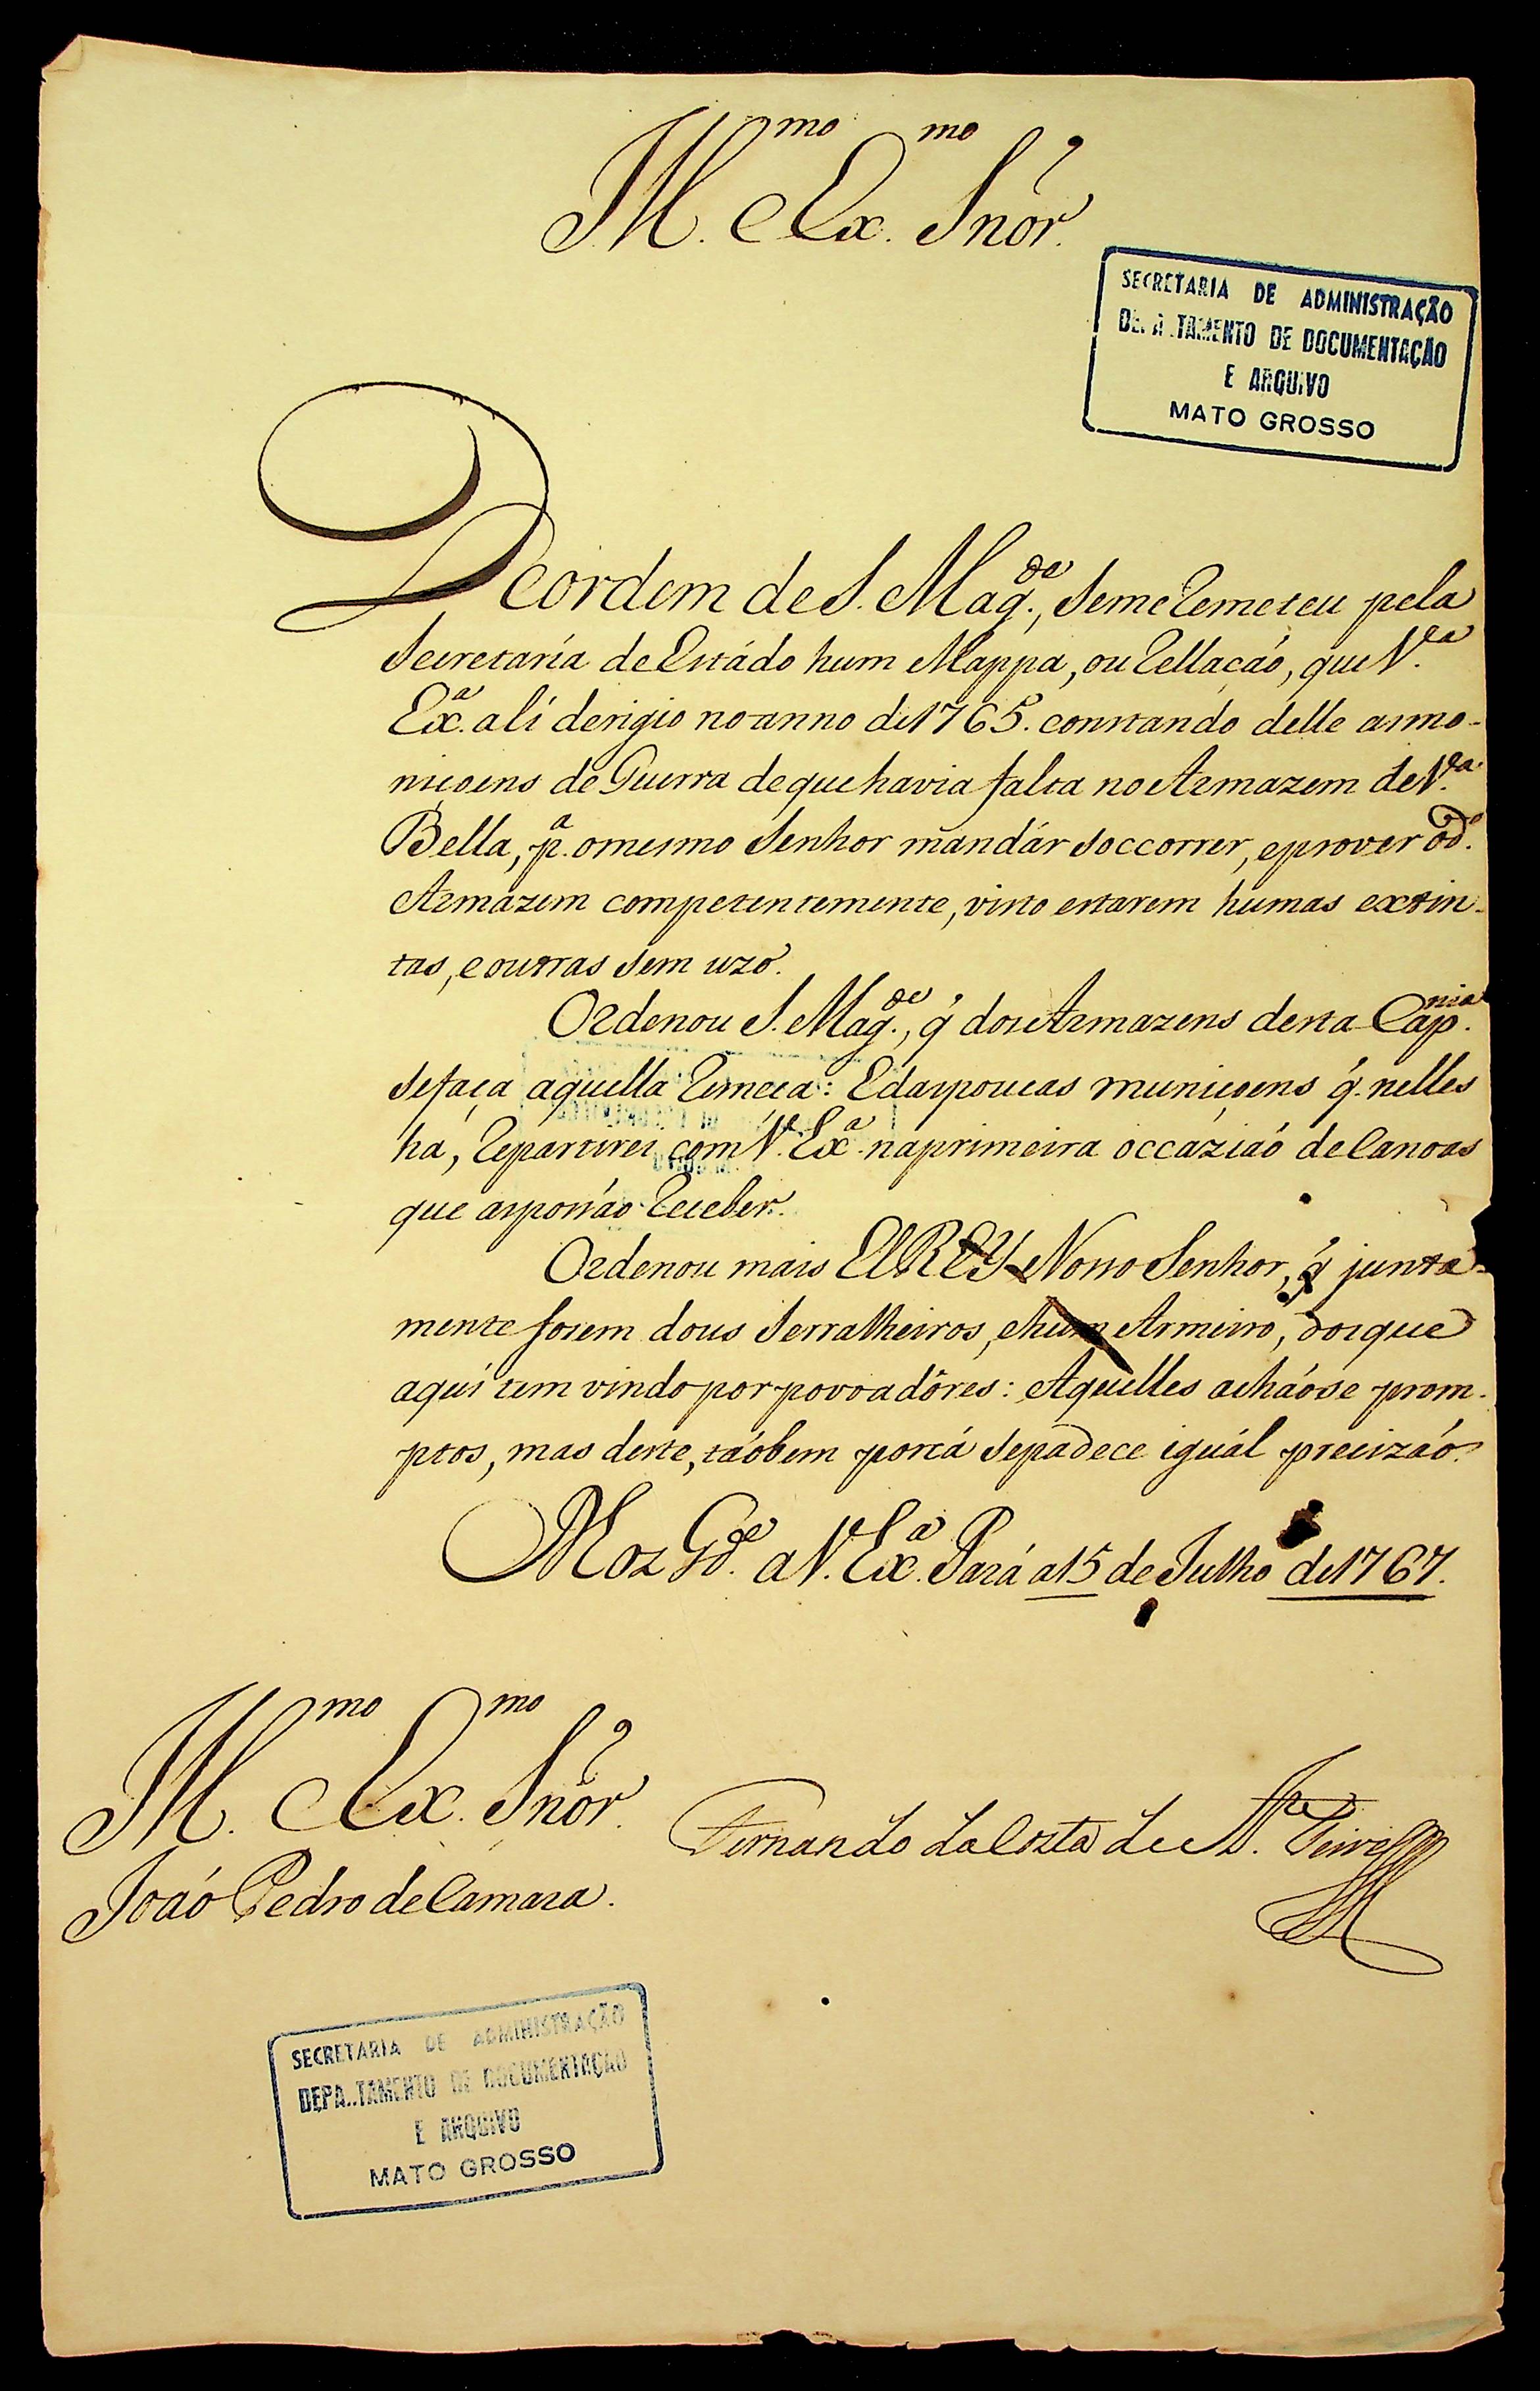 Ill.mo e Ex.mo Snõr.
SECRETARIA DE ADMINISTRAÇÃO
DEPA.TAMENTO DE DOCUMENTAÇÃO
E ARQUIVO
MATO GROSSO
De ordem de S. Mag.de, se me remeteu pela
Secretaría de Estádo hum Mappa, ou rellaçaó, que V.ª
Ex.ª alí derigio no anno de 1765. constando delle as mo-
niçoens de Guerra de que havia falta no Armazem de V.ª
Bella, p.ª o mesmo Senhor mandár soccorrer, e prover o d.º
Armazem competentemente, visto estarem humas extin-
tas, e outras sem uzo.
Ordenou S. Mag.de, q' dos Armazens desta Cap.nia
se faça aquella remeça: E das poucas muniçoens q'. nelles
ha, repartirei com V. Ex.ª na primeira occaziaó de Canoas
que as possáo receber.
Ordenou mais ElREY Nosso Senhor, q' junta-
mente fosem dous Serralheiros, e hum Armeiro, dos que
aquí tem vindo por povoadôres: Aquelles acháose prom-
ptos, mas deste, táobem por cá se padece iguál precizáo.
D.s G.de a V. Ex.ª Pará a 15 de Julho de 1767.
Ill.mo e Ex.mo Snõr.
Joaó Pedro de Camara.
Fernando da Costa de At.de Teive
SECRETARIA DE ADMINISTRAÇÃO
DEPA..TAMENTO DE DOCUMENTAÇÃO
E ARQUIVO
MATO GROSSO